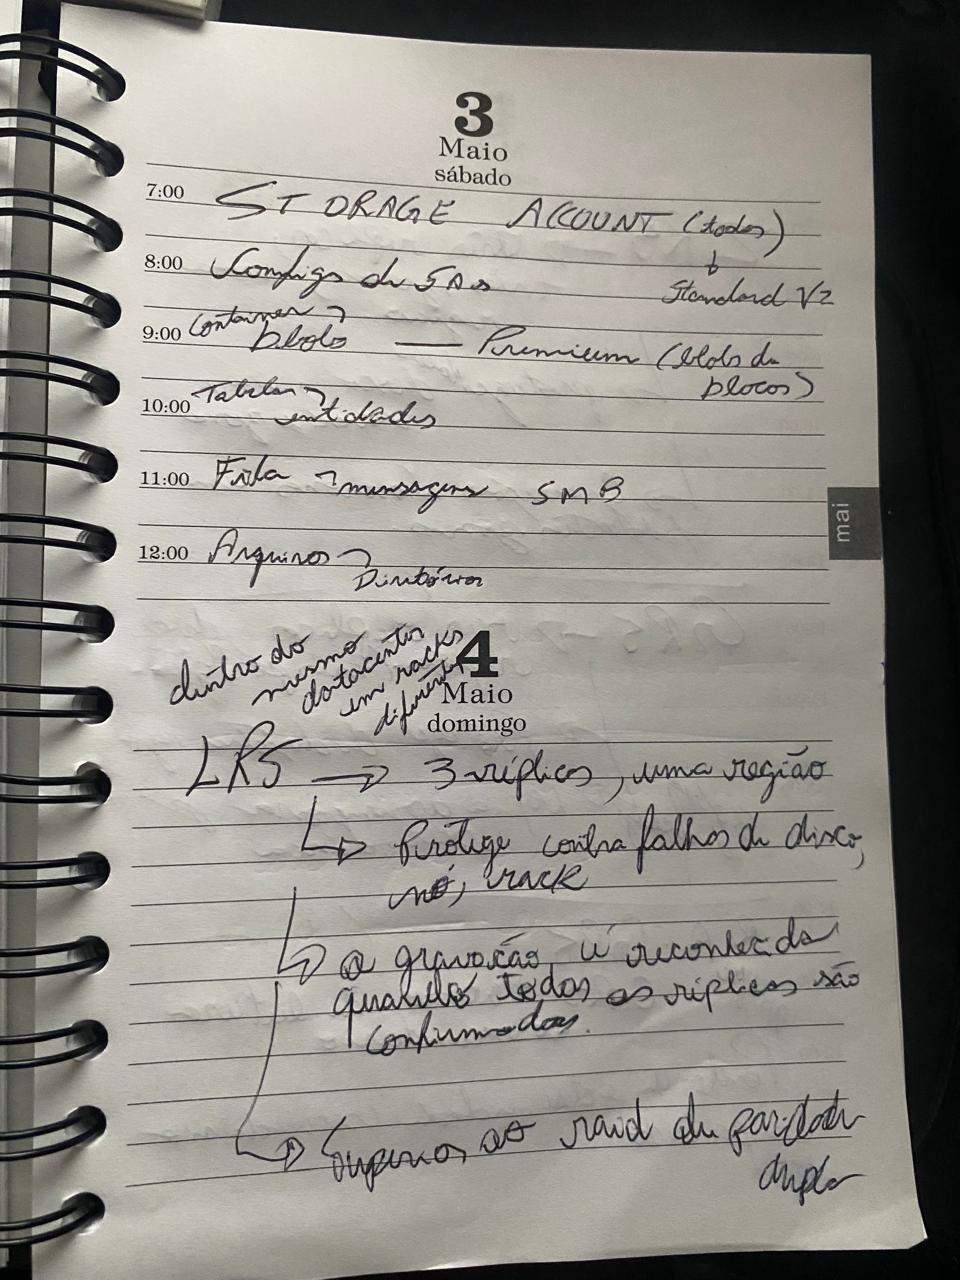 3
Maio
sábado
7:00 STORAGE ACCOUNT (todos)
8:00 Configs de SAs Standard V2
9:00 Container
blobs — Premium (blobs de
blocos)
10:00 Tabelas
entidades
11:00 Fila mensagens SMB
mai
12:00 Arquivos
Diretórios
dentro do
mesmo
datacenter
em racks
diferentes
4
Maio
domingo
LRS → 3 réplicas, uma região
Protege contra falhas de disco,
nó, rack
a gravação é reconhecida
quando todas as réplicas são
confirmadas.
ao raid de paridade
dupla